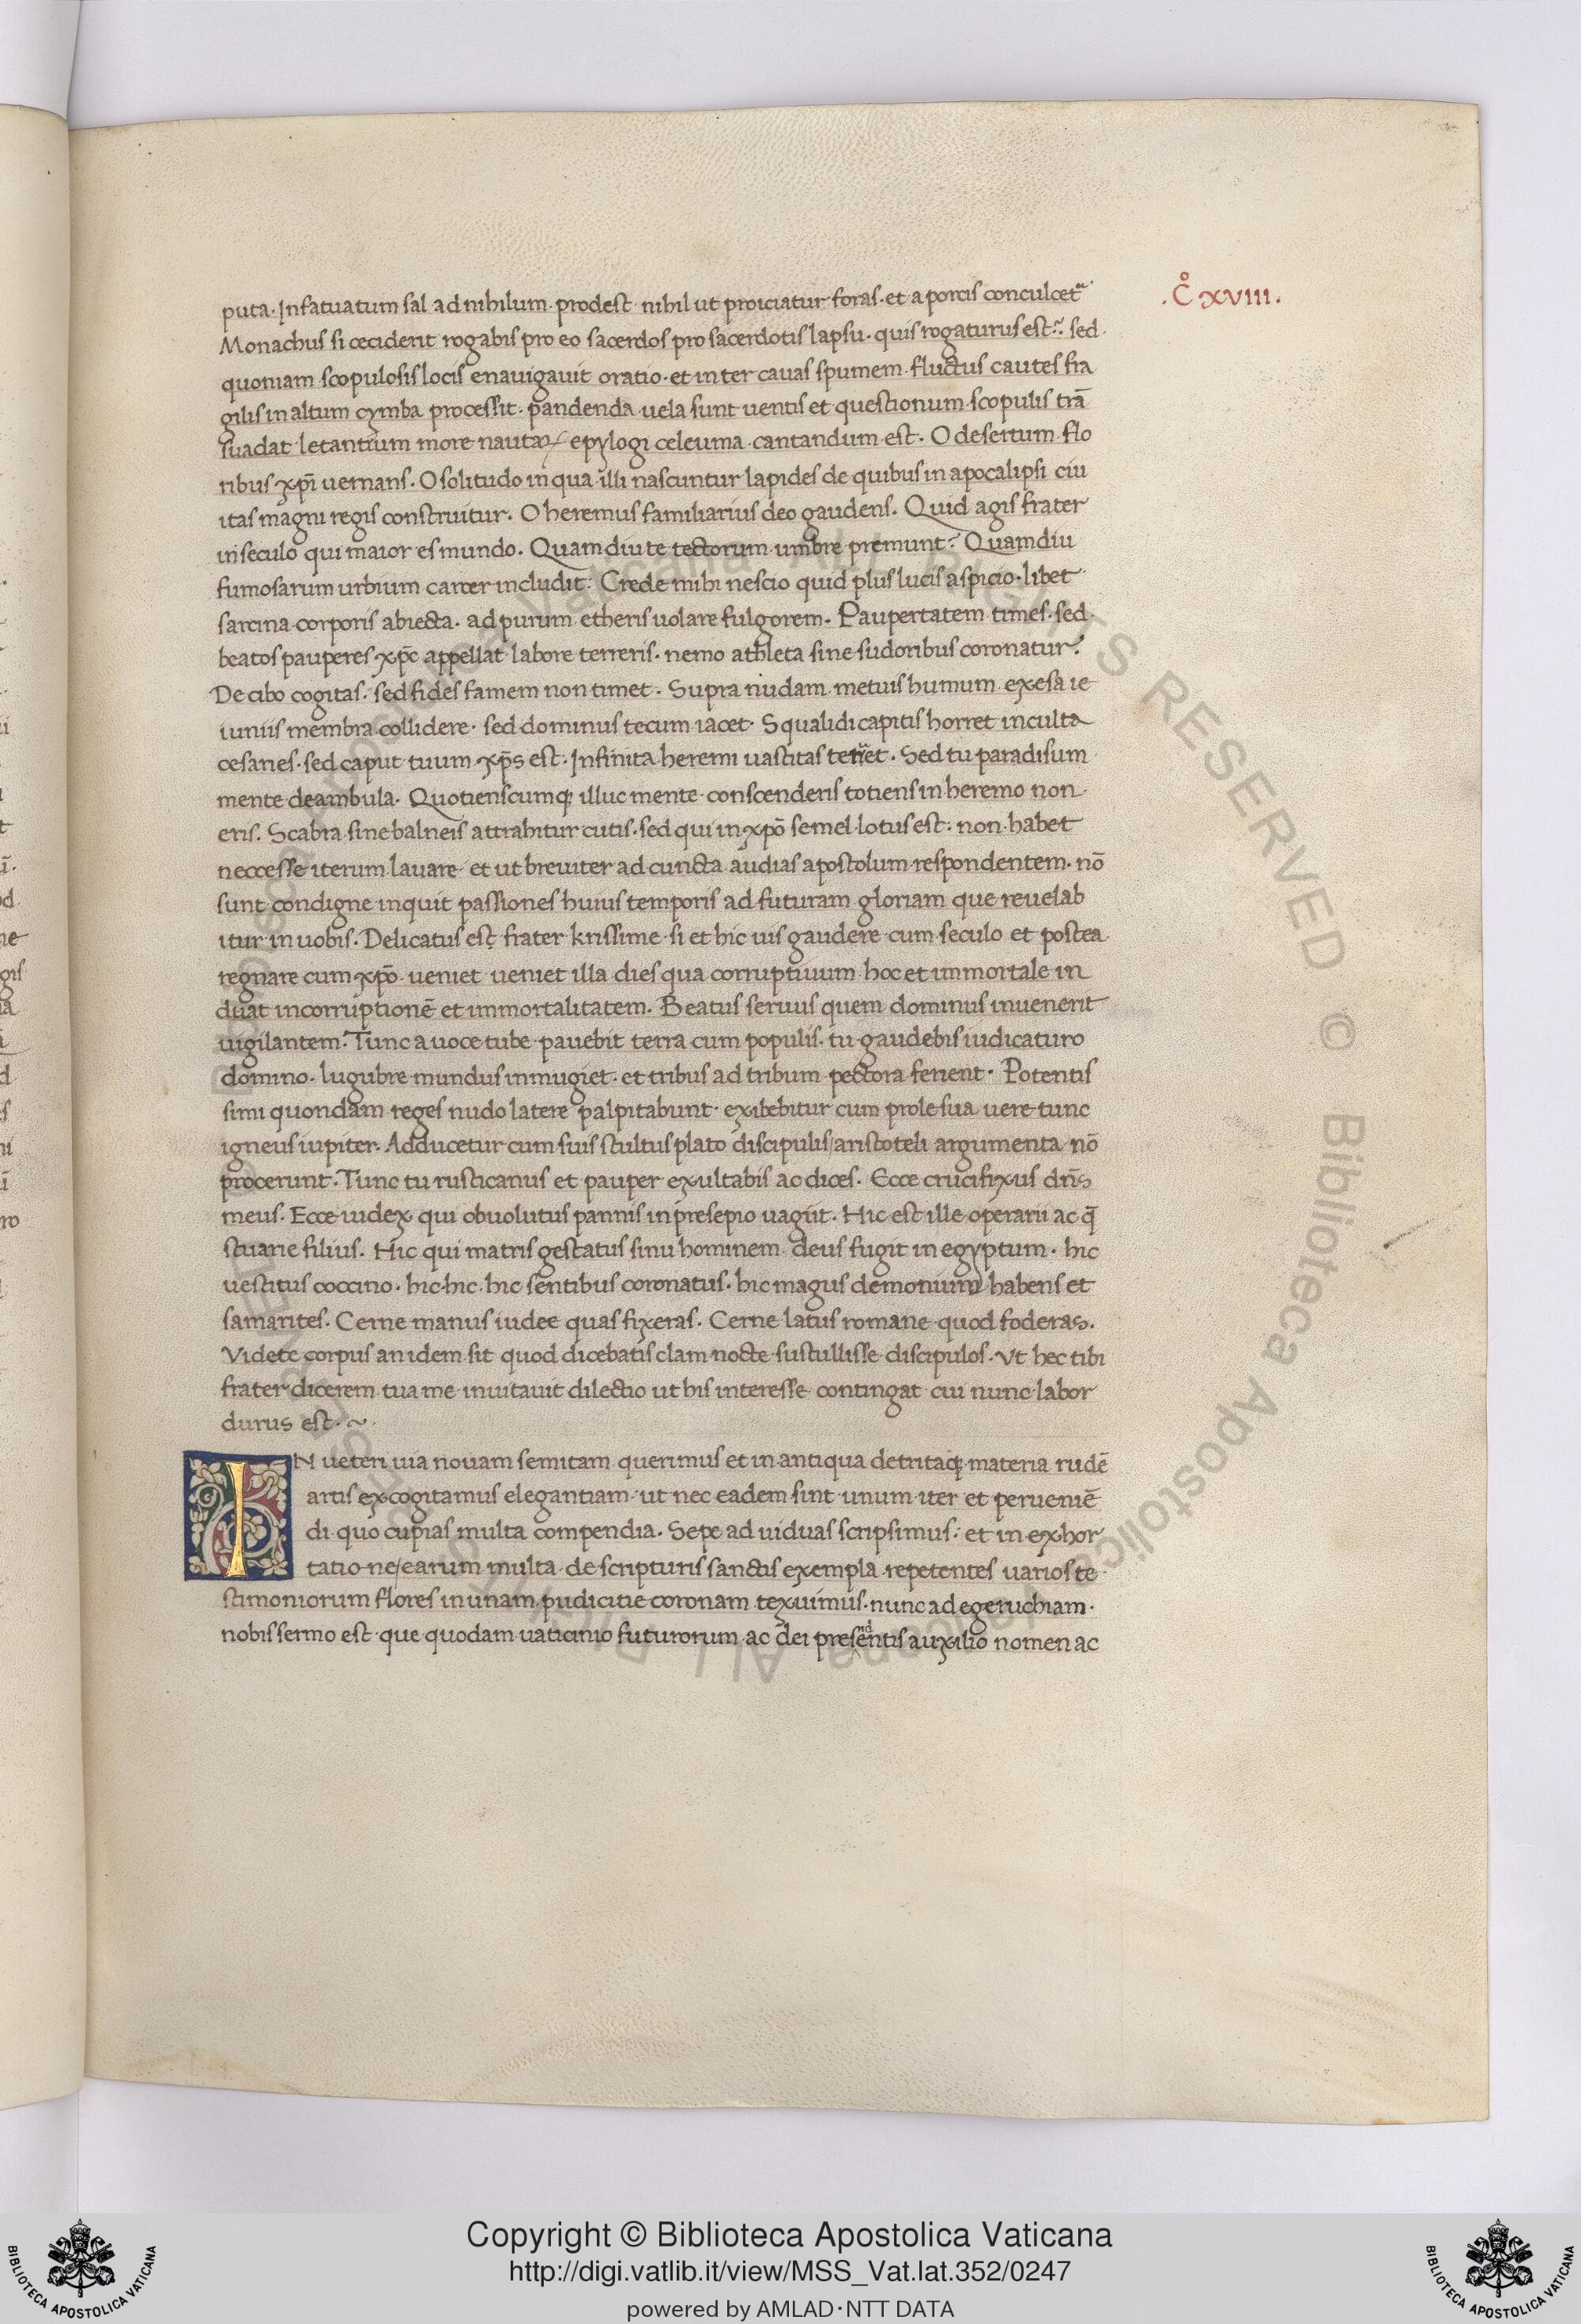 .C̊ xviii.
puta. Infatuatum sal ad nihilum prodest nihil ut proiciatur foras. et a porcis conculcet᷑
Monachus si ceciderit rogabis pro eo sacerdos pro sacerdotis lapsu. quis rogaturus est? sed
quoniam scopulosis locis enauigauit oratio. et inter cauas spumem fluctus cautes fra
gilis in altum cymba processit. pandenda uela sunt uentis et questionum scopulis trā
suadat letantium more nautaꝝ/ epylogi celeuma cantandum est. O desertum flo
ribus xp̄i uernans. O solitudo in qua illi nascuntur lapides de quibus in apocalipsi ciu
itas magni regis construitur. O heremus familiarius deo gaudens. Quid agis frater
in seculo qui maior es mundo. Quam diu te tectorum umbre premunt? Quam diu
fumosarum urbium carcer includit: Crede mihi nescio quid plus lucis aspicio. libet
sarcina corporis abiecta. ad purum etheris uolare fulgorem. Paupertatem times. sed
beatos pauperes xp̄c appellat labore terreris. nemo athleta sine sudoribus coronatur.
De cibo cogitas. sed fides famem non timet. Supra nudam metuis humum exesa ie
iuniis membra collidere. sed dominus tecum iacet. Squalidi capitis horret inculta
cesaries. sed caput tuum xp̄s est. Infinita heremi uastitas terret. Sed tu paradisum
mente deambula. Quotienscumq; illuc mente conscenderis totiens in heremo non
eris. Scabra sine balneis attrahitur cutis. sed qui in xp̄o semel lotus est: non habet
neccesse iterum lauare et ut breuiter ad cuncta audias apostolum respondentem. nō
sunt condigne inquit passiones huius temporis ad futuram gloriam que reuelab
itur in uobis. Delicatus es frater krissime si et hic uis gaudere cum seculo et postea
regnare cum xp̄o. ueniet ueniet illa dies qua corruptiuum hoc et immortale in
duat incorruptionē et immortalitatem. Beatus seruus quem dominus inuenerit
uigilantem. Tunc a uoce tube pauebit terra cum populis. tu gaudebis iudicaturo
domino. lugubre mundus inmugiet. et tribus ad tribum pectora ferient. Potentis
simi quondam reges nudo latere palpitabunt. exibebitur cum prole sua uere tunc
igneus iupiter. Adducetur cum suis stultus plato discipulis/aristoteli argumenta nō
procerunt. Tunc tu rusticanus et pauper exultabis ac dices. Ecce crucifixus dn̄s
meus. Ecce iudex qui obuolutus pannis in presepio uagiit. Hic est ille operarii ac q̄
stuarie filius. Hic qui matris gestatus sinu hominem deus fugit in egyptum. hic
uestitus coccino. hic. hic. hic sentibus coronatus. hic magus demonium habens et
samarites. Cerne manus iudee quas fixeras. Cerne latus romane quod foderas.
Videte corpus an idem sit quod dicebatis clam nocte sustullisse discipulos. Vt hec tibi
frater dicerem tua me inuitauit dilectio ut his interesse contingat cui nunc labor
durus est. ~
IN ueteri uia nouam semitam querimus et in antiqua detritaq; materia rudē
artis excogitamus elegantiam. ut nec eadem sint unum iter et perueniē
di quo cupias multa compendia. Sepe ad uiduas scripsimus: et in exhor
tatio ne/earum multa de scripturis sanctis exempla repetentes uarios te
stimoniorum flores in unam pudicitie coronam teximus. nunc ad egeruchiam
nobis sermo est que quodam uaticinio futurorum ac dei presentis auxilio nomen ac
Copyright © Biblioteca Apostolica Vaticana
http://digi.vatlib.it/view/MSS_Vat.lat.352/0247
powered by AMLAD·NTT DATA
BIBLIOTECA APOSTOLICA VATICANA
BIBLIOTECA APOSTOLICA VATICANA